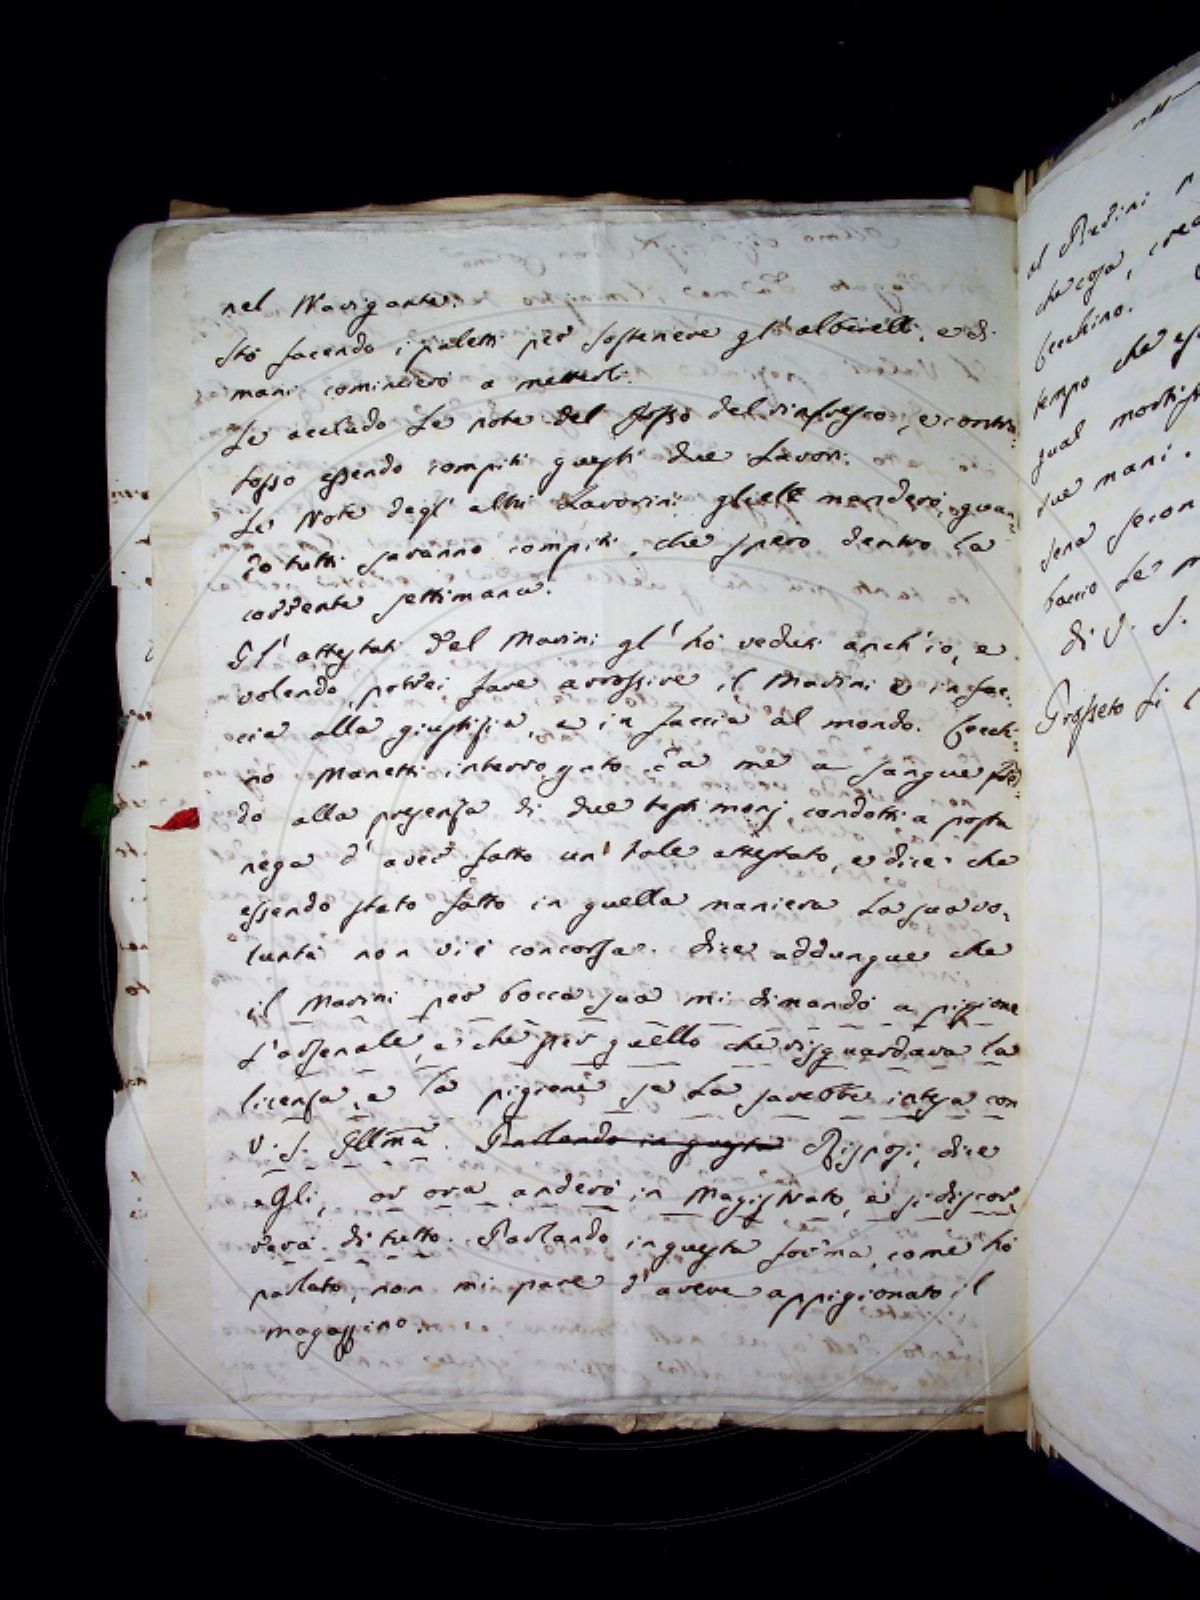 nel Navigante.
Stò facendo i paletti per sostenere gl' alberelli, e di
mani comincierò a metterli.
Le accludo Le note del fosso del rinfresco, e contra=
fosso essendo compiti questi due Lavori.
Le Note degl' altri Lavorini glielle manderò, quan=
do tutti saranno compiti, che spero dentro la
corrente settimana.
Gl' attestati del Marini gl' hò veduti anch' io, e
volendo, potrei fare arrossire il Marini e in fac=
cia alla giustizia, e in faccia al mondo. Cecchi=
no Manetti interrogato da me a sangue fred=
do alla presenza di due testimonj condotti a posta
nega d' aver fatto un' tale attestato, e dice che
essendo stato fatto in quella maniera La sua vo=
luntà non vi è concorsa. Dice addunque che
il Marini per bocca sua mi dimandò a pigione
L' arsenale, e che per quello che risguardava la
licenza, e la pigione se La sarebbe intesa con
V. S. Illma. Parlando in questa Risposi, dice
eGli, or ora anderò in Magistrato, e si discor=
rerà di tutto. Parlando in questa forma, come hò
parlato, non mi pare d' avere appigionato il
magazzino.
al Redini
che cosa, cre
Cecchino.
tempo che
qual
due mani.
sena secon
baccio Le m
di V. S.
Grosseto Li